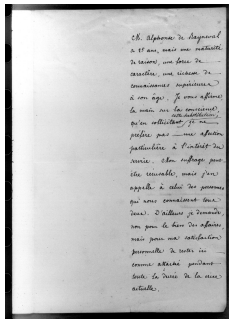 M. Alphonse de Rayneval
a 21 ans, mais une maturité
de raison, une force de
caractère, une richesse de
connaissances supérieures
à son âge. Je vous affirme
la main sur la conscience,
cette substitution,
qu'en sollicitant, je ne
préfère pas une affection
particulière à l'intérêt du
service. Mon suffrage peut
être récusable, mais j'en
appelle à celui des personnes
qui nous connaissent tous
deux. D'ailleurs je demande
non pour le bien des affaires
mais pour ma satisfaction
personnelle de rester ici
comme attaché pendant
toute la durée de la crise
actuelle.